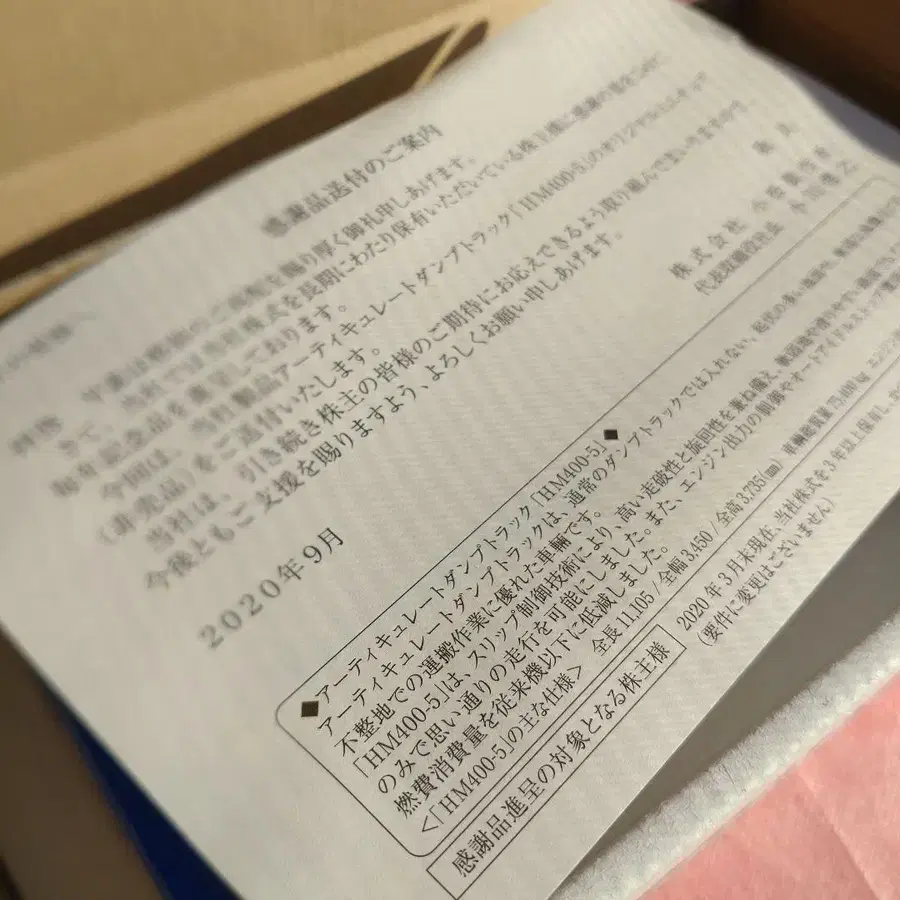 感謝品送付のご案内
株主の皆様へ
拝啓 平素は格別のご高配を賜り厚く御礼申しあげます。
さて、当社では当社株式を長期にわたり保有いただいている株主様に感謝の意をこめて
毎年記念品を進呈しております。
今回は、当社製品アーティキュレートダンプトラック「HM400-5」のオリジナルミニチュア
(非売品)をご送付いたします。
当社は、引き続き株主の皆様のご期待にお応えできるよう取り組んでまいりますので、
今後ともご支援を賜りますよう、よろしくお願い申しあげます。
敬具
2020年9月
株式会社 小松製作所
代表取締役社長
◆アーティキュレートダンプトラック「HM400-5」◆
アーティキュレートダンプトラックは、通常のダンプトラックでは入れない、起伏の多い
不整地での運搬作業に優れた車輛です。
「HM400-5」は、スリップ制御技術により、高い走破性と旋回性を兼ね備え、
のみで思い通りの走行を可能にしました。また、エンジン出力の制御やオートアイドルストップ
燃費消費量を従来機以下に低減しました。
<「HM400-5」の主な仕様> 全長 11,105 / 全幅 3,450 / 全高 3,735(㎜) 車輛総質量 75,400 kg
感謝品進呈の対象となる株主様 2020年3月末現在、当社株式を3年以上保有し、
(要件に変更はございません)